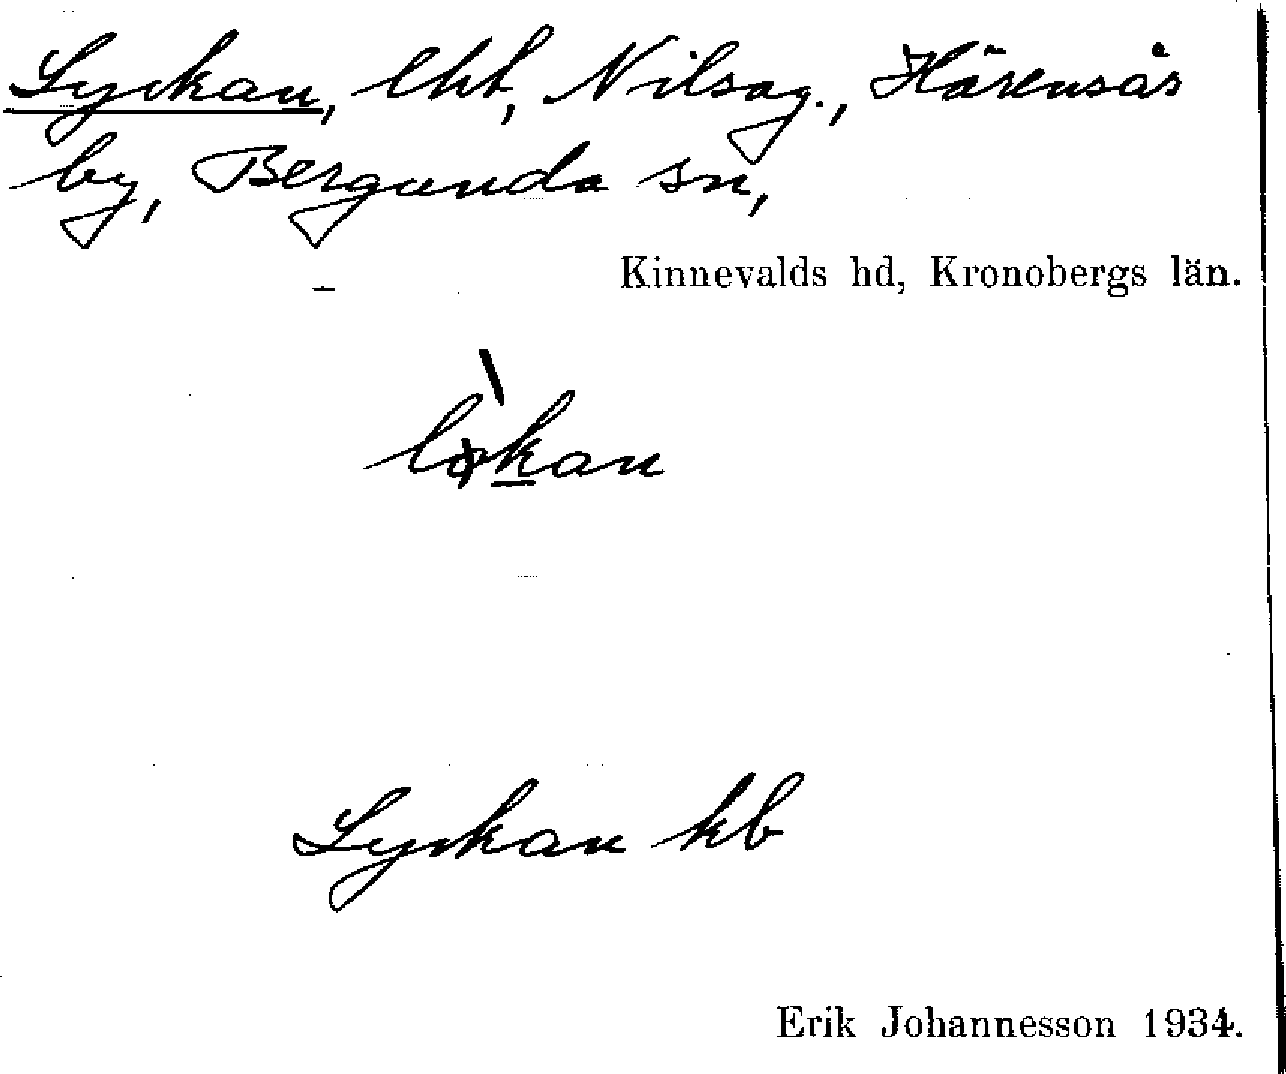 Lyckan, lht, Nilsag., Härensås
by, Bergunda sn,
Kinnevalds hd, Kronobergs län.
Lyckan kb
Erik Johannesson 1934.